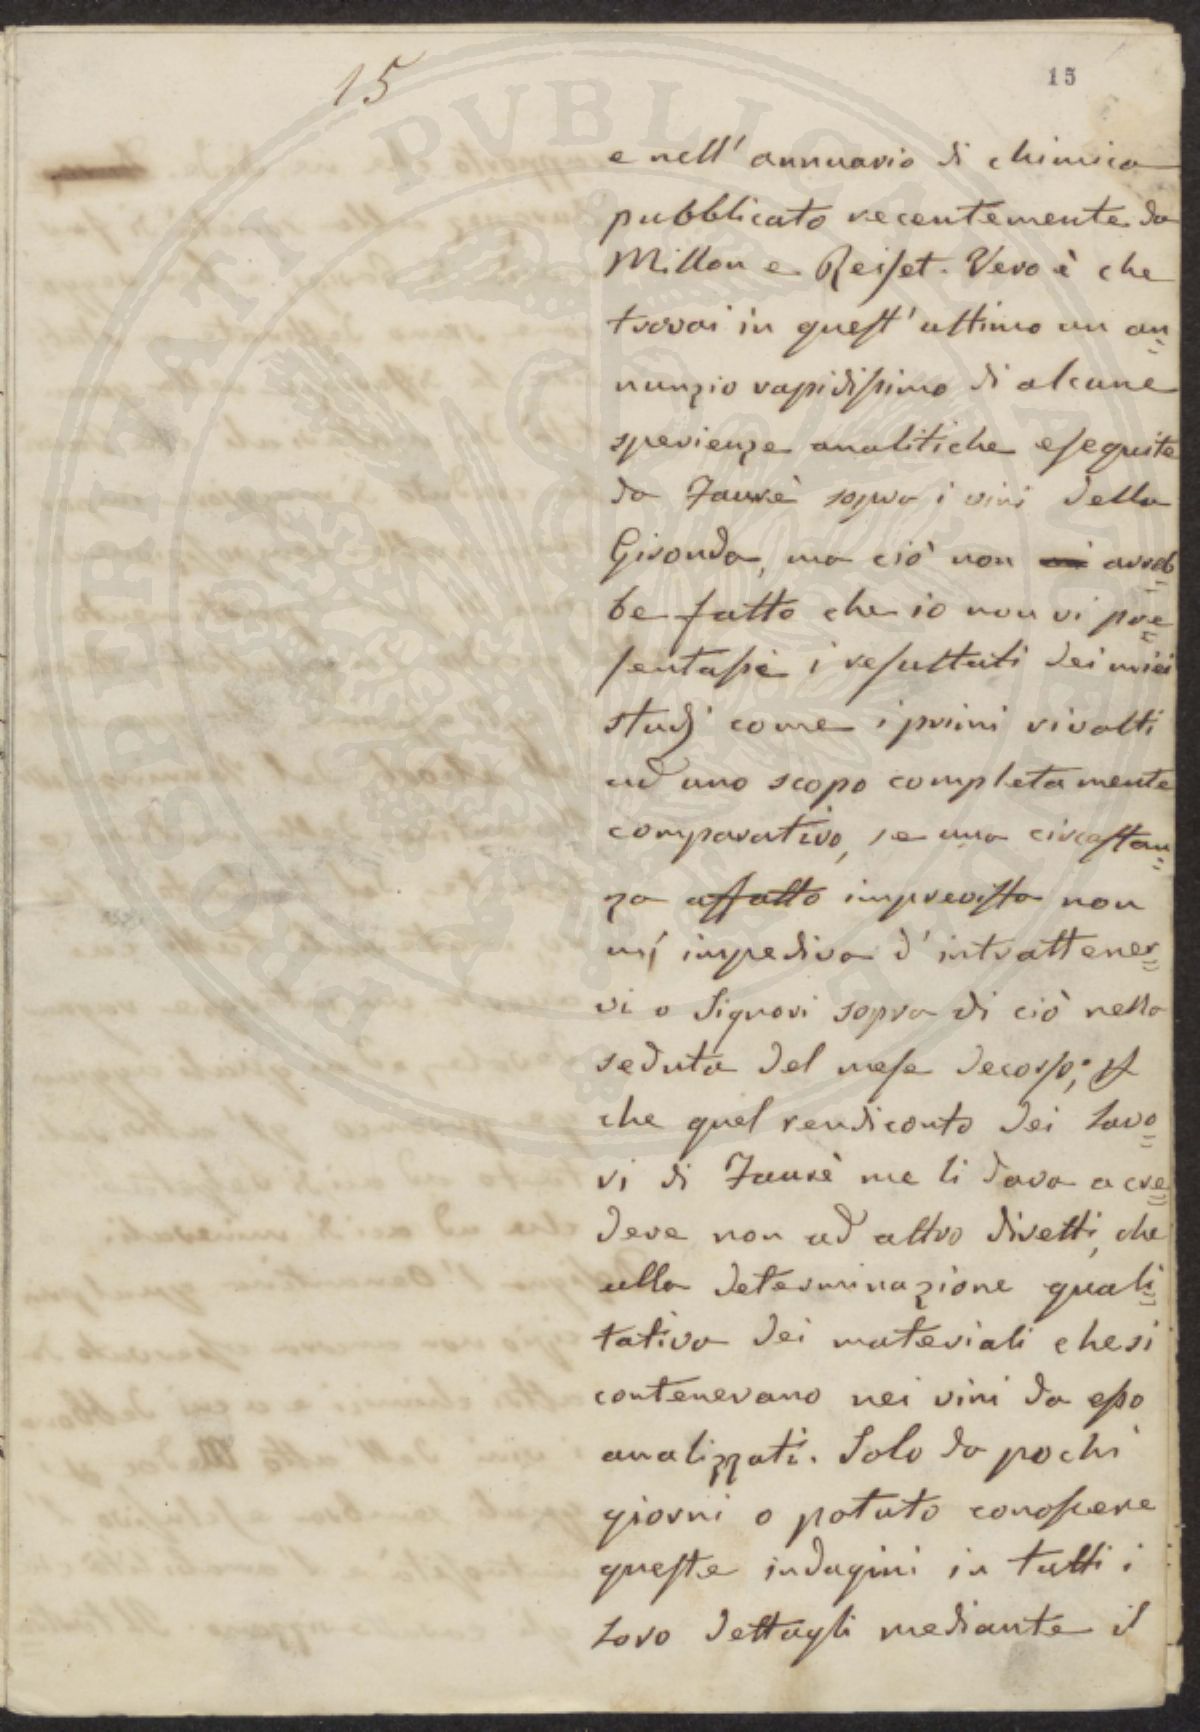 15
15
e nell' annuario di chimica
pubblicato recentemente da
Millon e Reiset. Vero è che
trovai in quest' ultimo un an=
nunzio rapidissimo di alcune
sperienze analitiche eseguite
da Faurè sopra i vini della
Gironda, ma ciò non avreb=
be fatto che io non vi pre=
sentassi i resultati dei miei
studj come i primi rivolti
ad uno scopo completamente
comparativo, se una circostan=
za affatto imprevista non
mi impediva d' intrattener=
vi o Signori sopra di ciò nella
seduta del mese decorso;
che quel rendiconto dei Lavo=
ri di Faurè me li dava a cre=
dere non ad altro diretti, che
alla determinazione quali=
tativa dei materiali che si
contenevano nei vini da esso
analizzati. Solo da pochi
giorni o potuto conoscere
queste indagini in tutti i
Loro dettagli mediante il
PROSPERITATI PVBLICAE